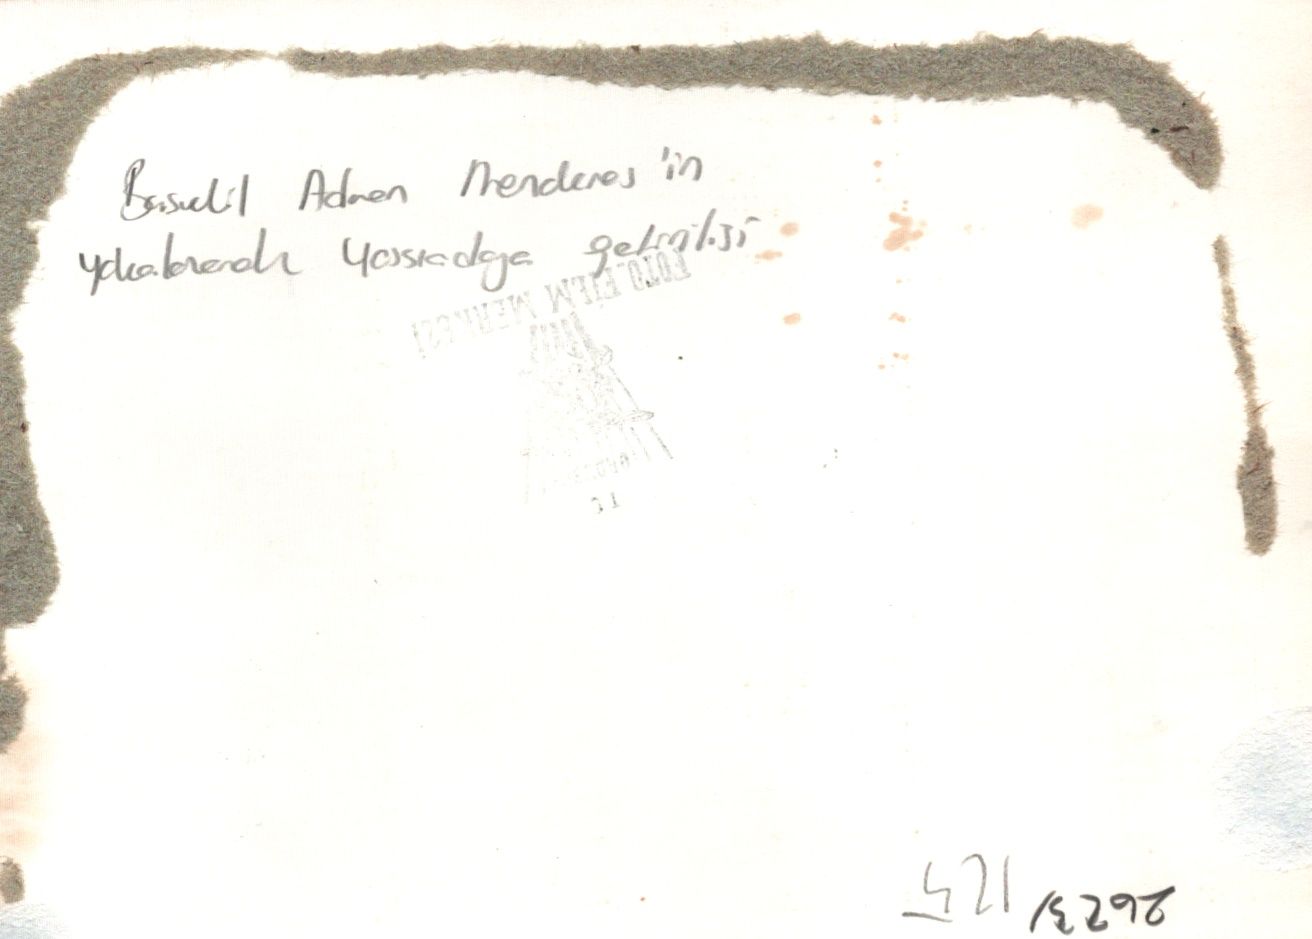 Başvekil Adnan Menderes'in
yakalanarak Yassıadaya getirilişi
FOTO FİLM MERKEZİ
T C